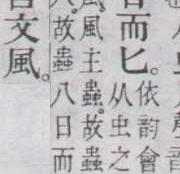 而匕。依韵會
从虫之
風主蟲。故蟲
故蟲八日而
文風。